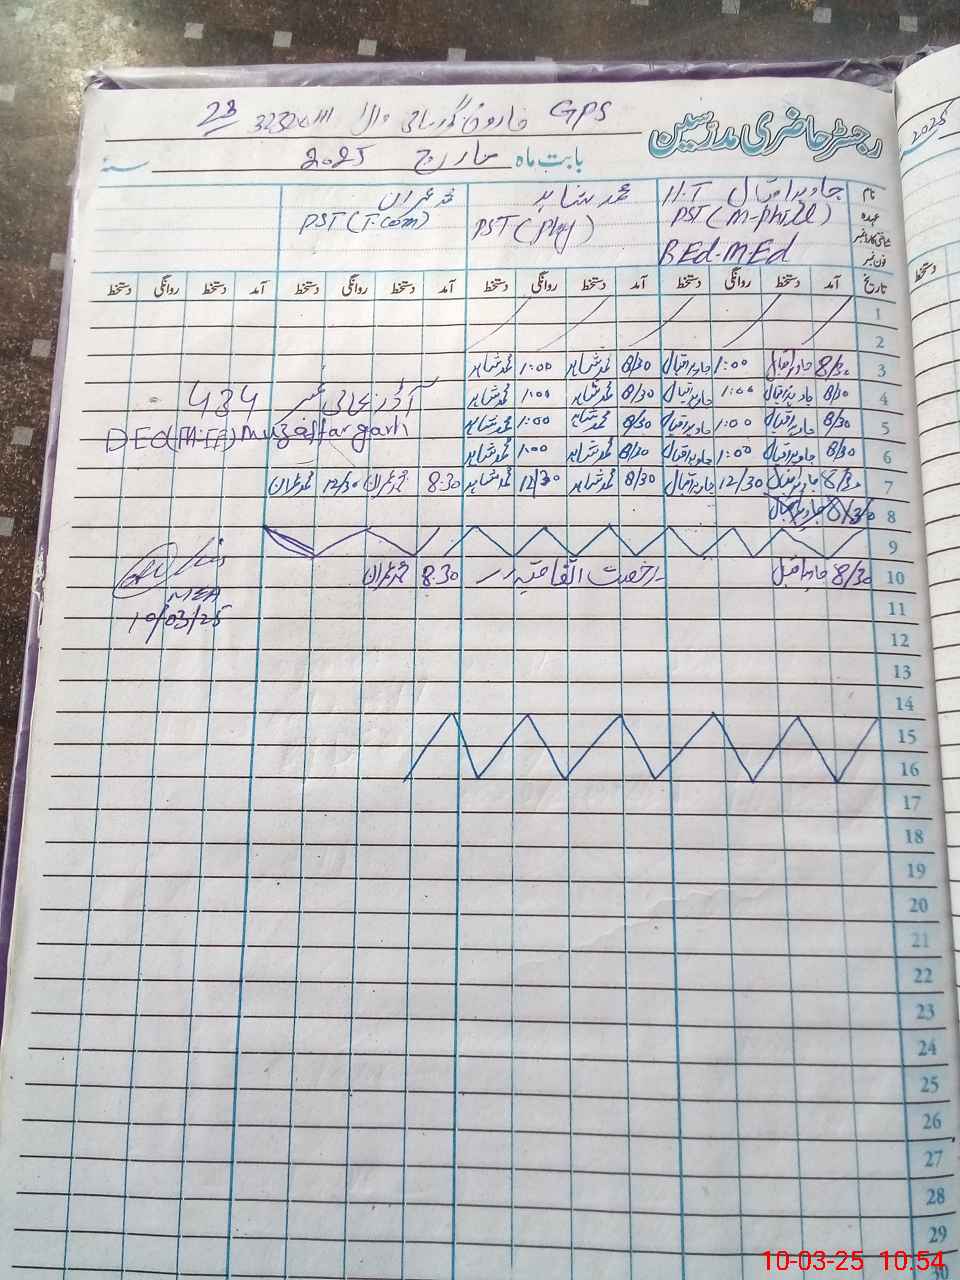 GPS فاروق 23
رجسٹر حاضری مدرسین
بابت ماہ مارچ 2025 سنہ
نام جاوید اقبال H.T محمد شاہد محمد عمران
عہدہ PST (M-phill) PST (phy) PST (I.com)
شناختی کارڈ نمبر
فون نمبر BEd-MEd
تاریخ آمد دستخط روانگی دستخط آمد دستخط روانگی دستخط آمد دستخط روانگی دستخط آمد دستخط روانگی دستخط
1
2
3 8/30 جاوید اقبال 1:00 جاوید اقبال 8/30 محمد شاہد 1:00 محمد شاہد
4 8/30 جاوید اقبال 1:00 جاوید اقبال 8/30 محمد شاہد 1:00 محمد شاہد 434
5 8/30 جاوید اقبال 1:00 جاوید اقبال 8/30 محمد شاہد 1:00 محمد شاہد DEO (M-EE) Muzaffargarh
6 8/30 جاوید اقبال 1:00 جاوید اقبال 8/30 محمد شاہد 1:00 محمد شاہد
7 8/30 جاوید اقبال 12/30 جاوید اقبال 8/30 محمد شاہد 12/30 محمد شاہد 8:30 محمد عمران 12/30 محمد عمران
8 8/30 جاوید اقبال
9
10 8/30 جاوید اقبال رخصت اتفاقیہ 8:30 محمد عمران
MEA
11 10/03/25
12
13
14
15
16
17
18
19
20
21
22
23
24
25
26
27
28
29
30
2025
دستخط
10-03-25 10:54